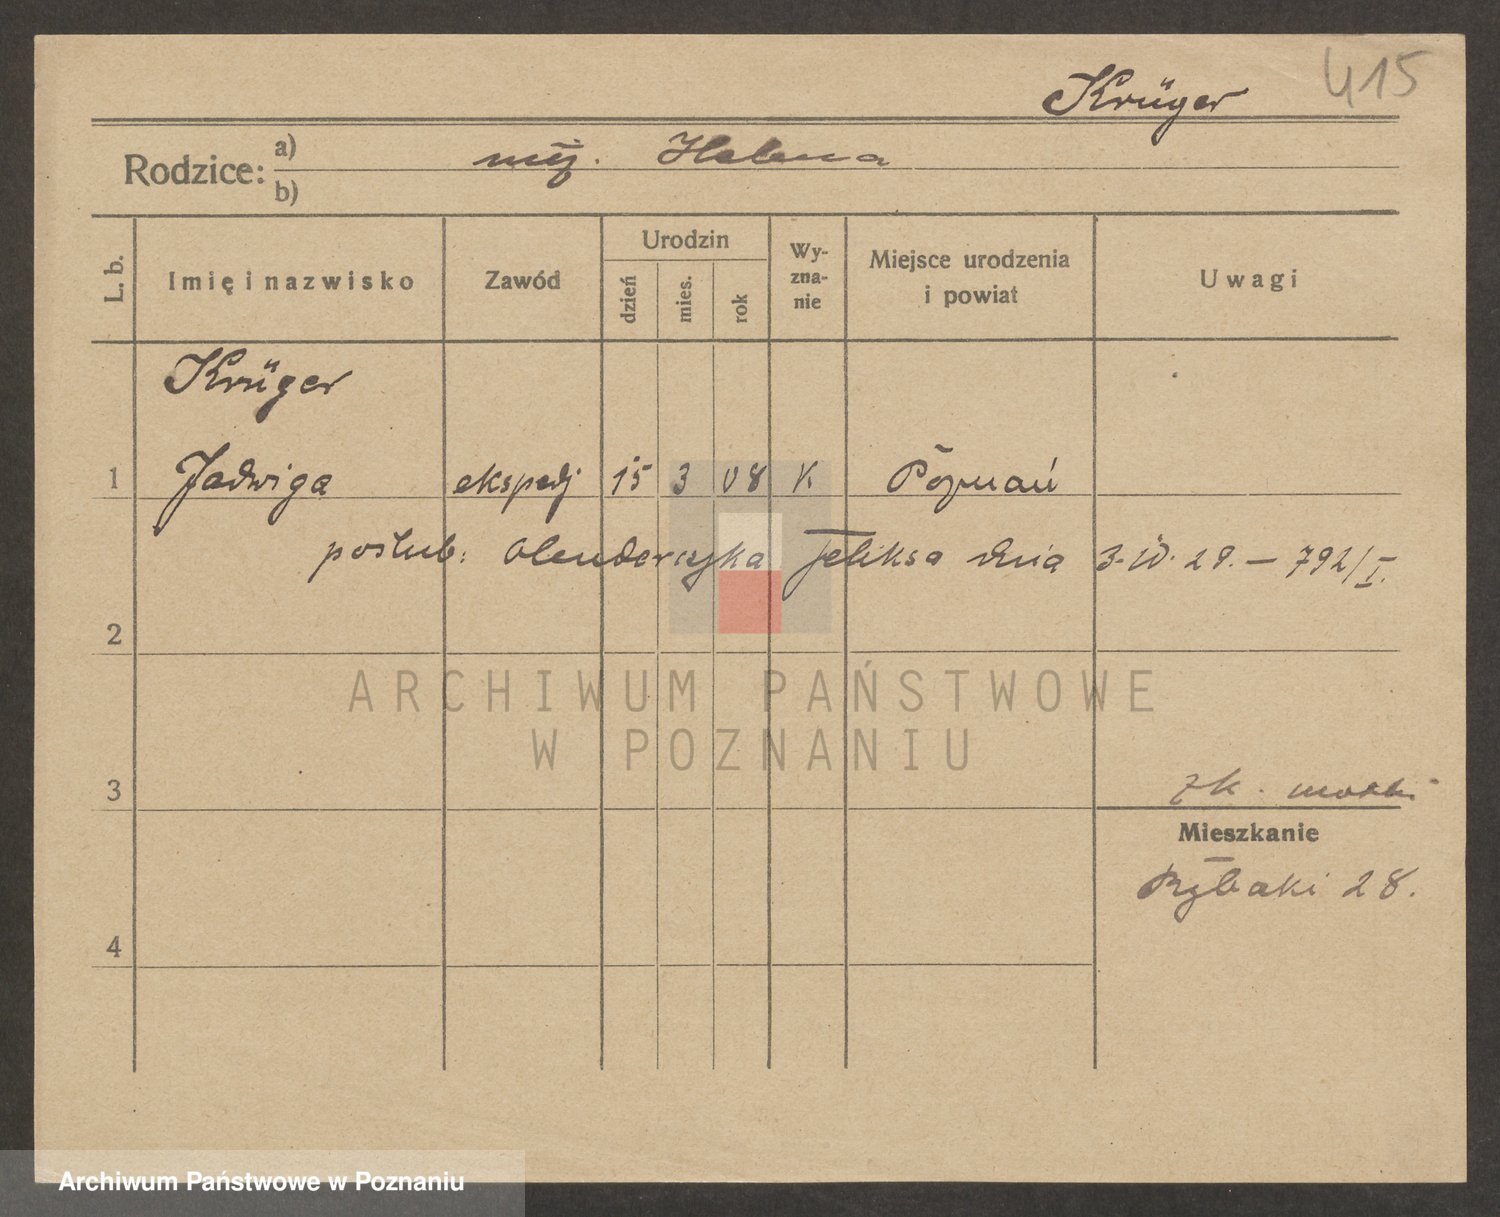 Krüger 415
Rodzice: a) Helena
b)
L. b. Imię i nazwisko Zawód Urodzin dzień mies. rok Wy-zna-nie Miejsce urodzenia i powiat Uwagi
Krüger
1 Jadwiga ekspedj 15 3 08 k. Poznań
poślub: Olenderczyka Feliksa dnia 29. — 792/I.
2
ARCHIWUM PAŃSTWOWE
W POZNANIU
3
Mieszkanie
Rybaki 28.
4
Archiwum Państwowe w Poznaniu